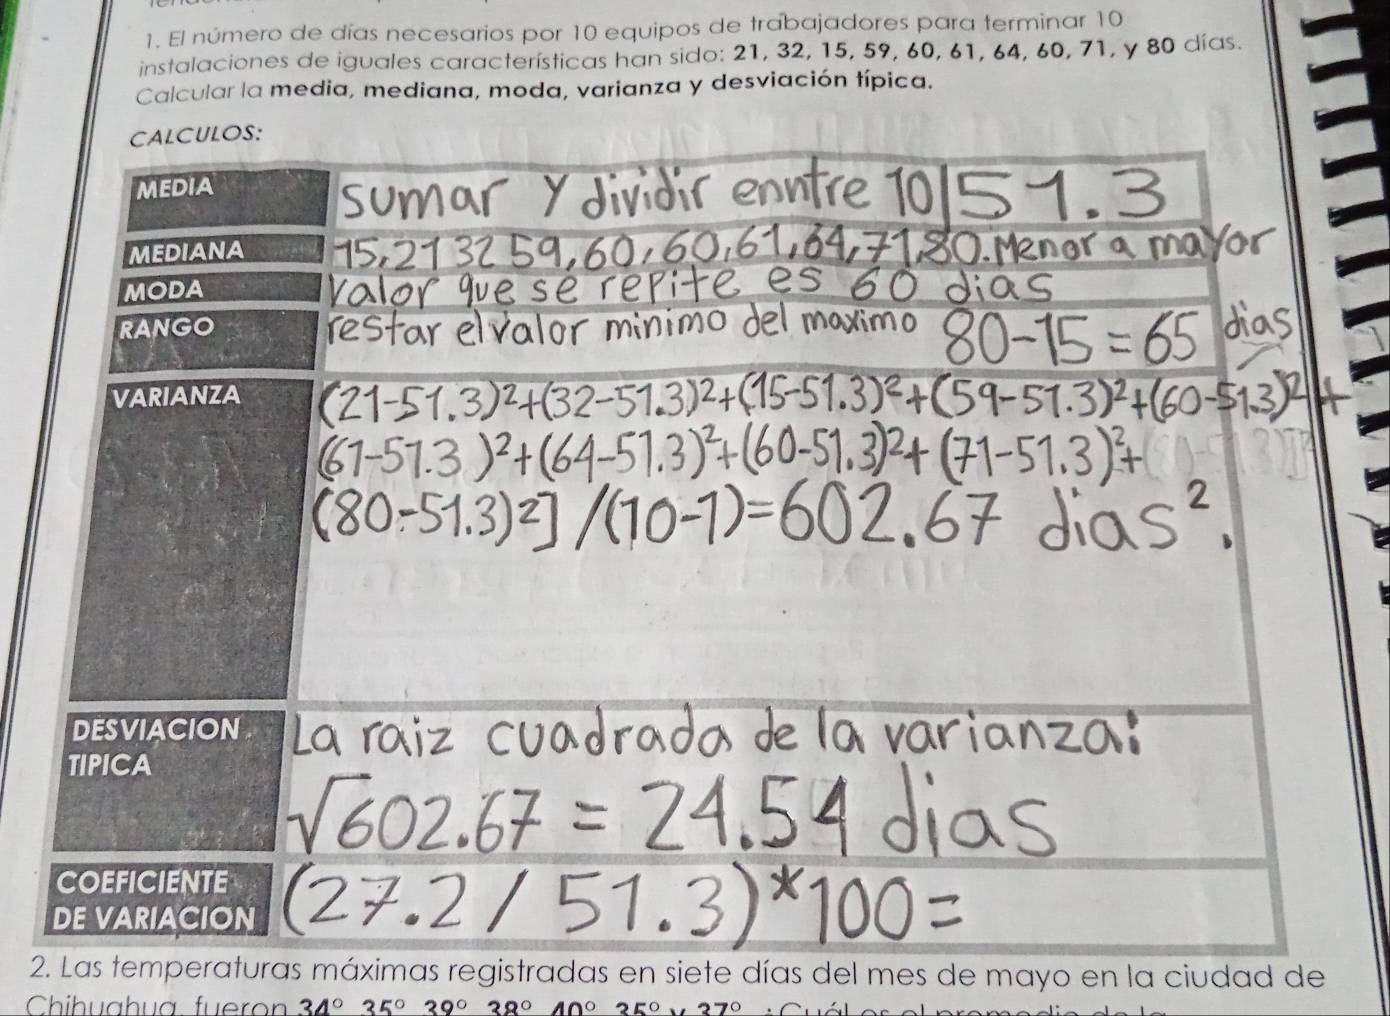 1. El número de días necesarios por 10 equipos de trabajadores para terminar 10
instalaciones de iguales características han sido: 21, 32, 15, 59, 60, 61, 64, 60, 71, y 80 días.
Calcular la media, mediana, moda, varianza y desviación típica.
CALCULOS:
MEDIA
sumar y dividir enntre 10 | 51.3
MEDIANA
15,21 32 59,60,60,61,64,71,80. Menor a mayor
MODA
valor que se repite es 60 dias
RANGO
restar el valor minimo del maximo 80-15=65 dias
VARIANZA
(21-51.3)²+(32-51.3)²+(15-51.3)²+(59-51.3)²+(60-51.3)²+
(61-51.3)²+(64-51.3)²+(60-51.3)²+(71-51.3)²+
(80-51.3)2]/(10-1)=602.67 dias².
DESVIACION
TIPICA
La raiz cuadrada de la varianza:
√602.67 = 24.54 dias
COEFICIENTE
DE VARIACION
(27.2/51.3)*100=
2. Las temperaturas máximas registradas en siete días del mes de mayo en la ciudad de
Chihuahua, fueron 34° 35° 39° 38° 40° 35° y 37°